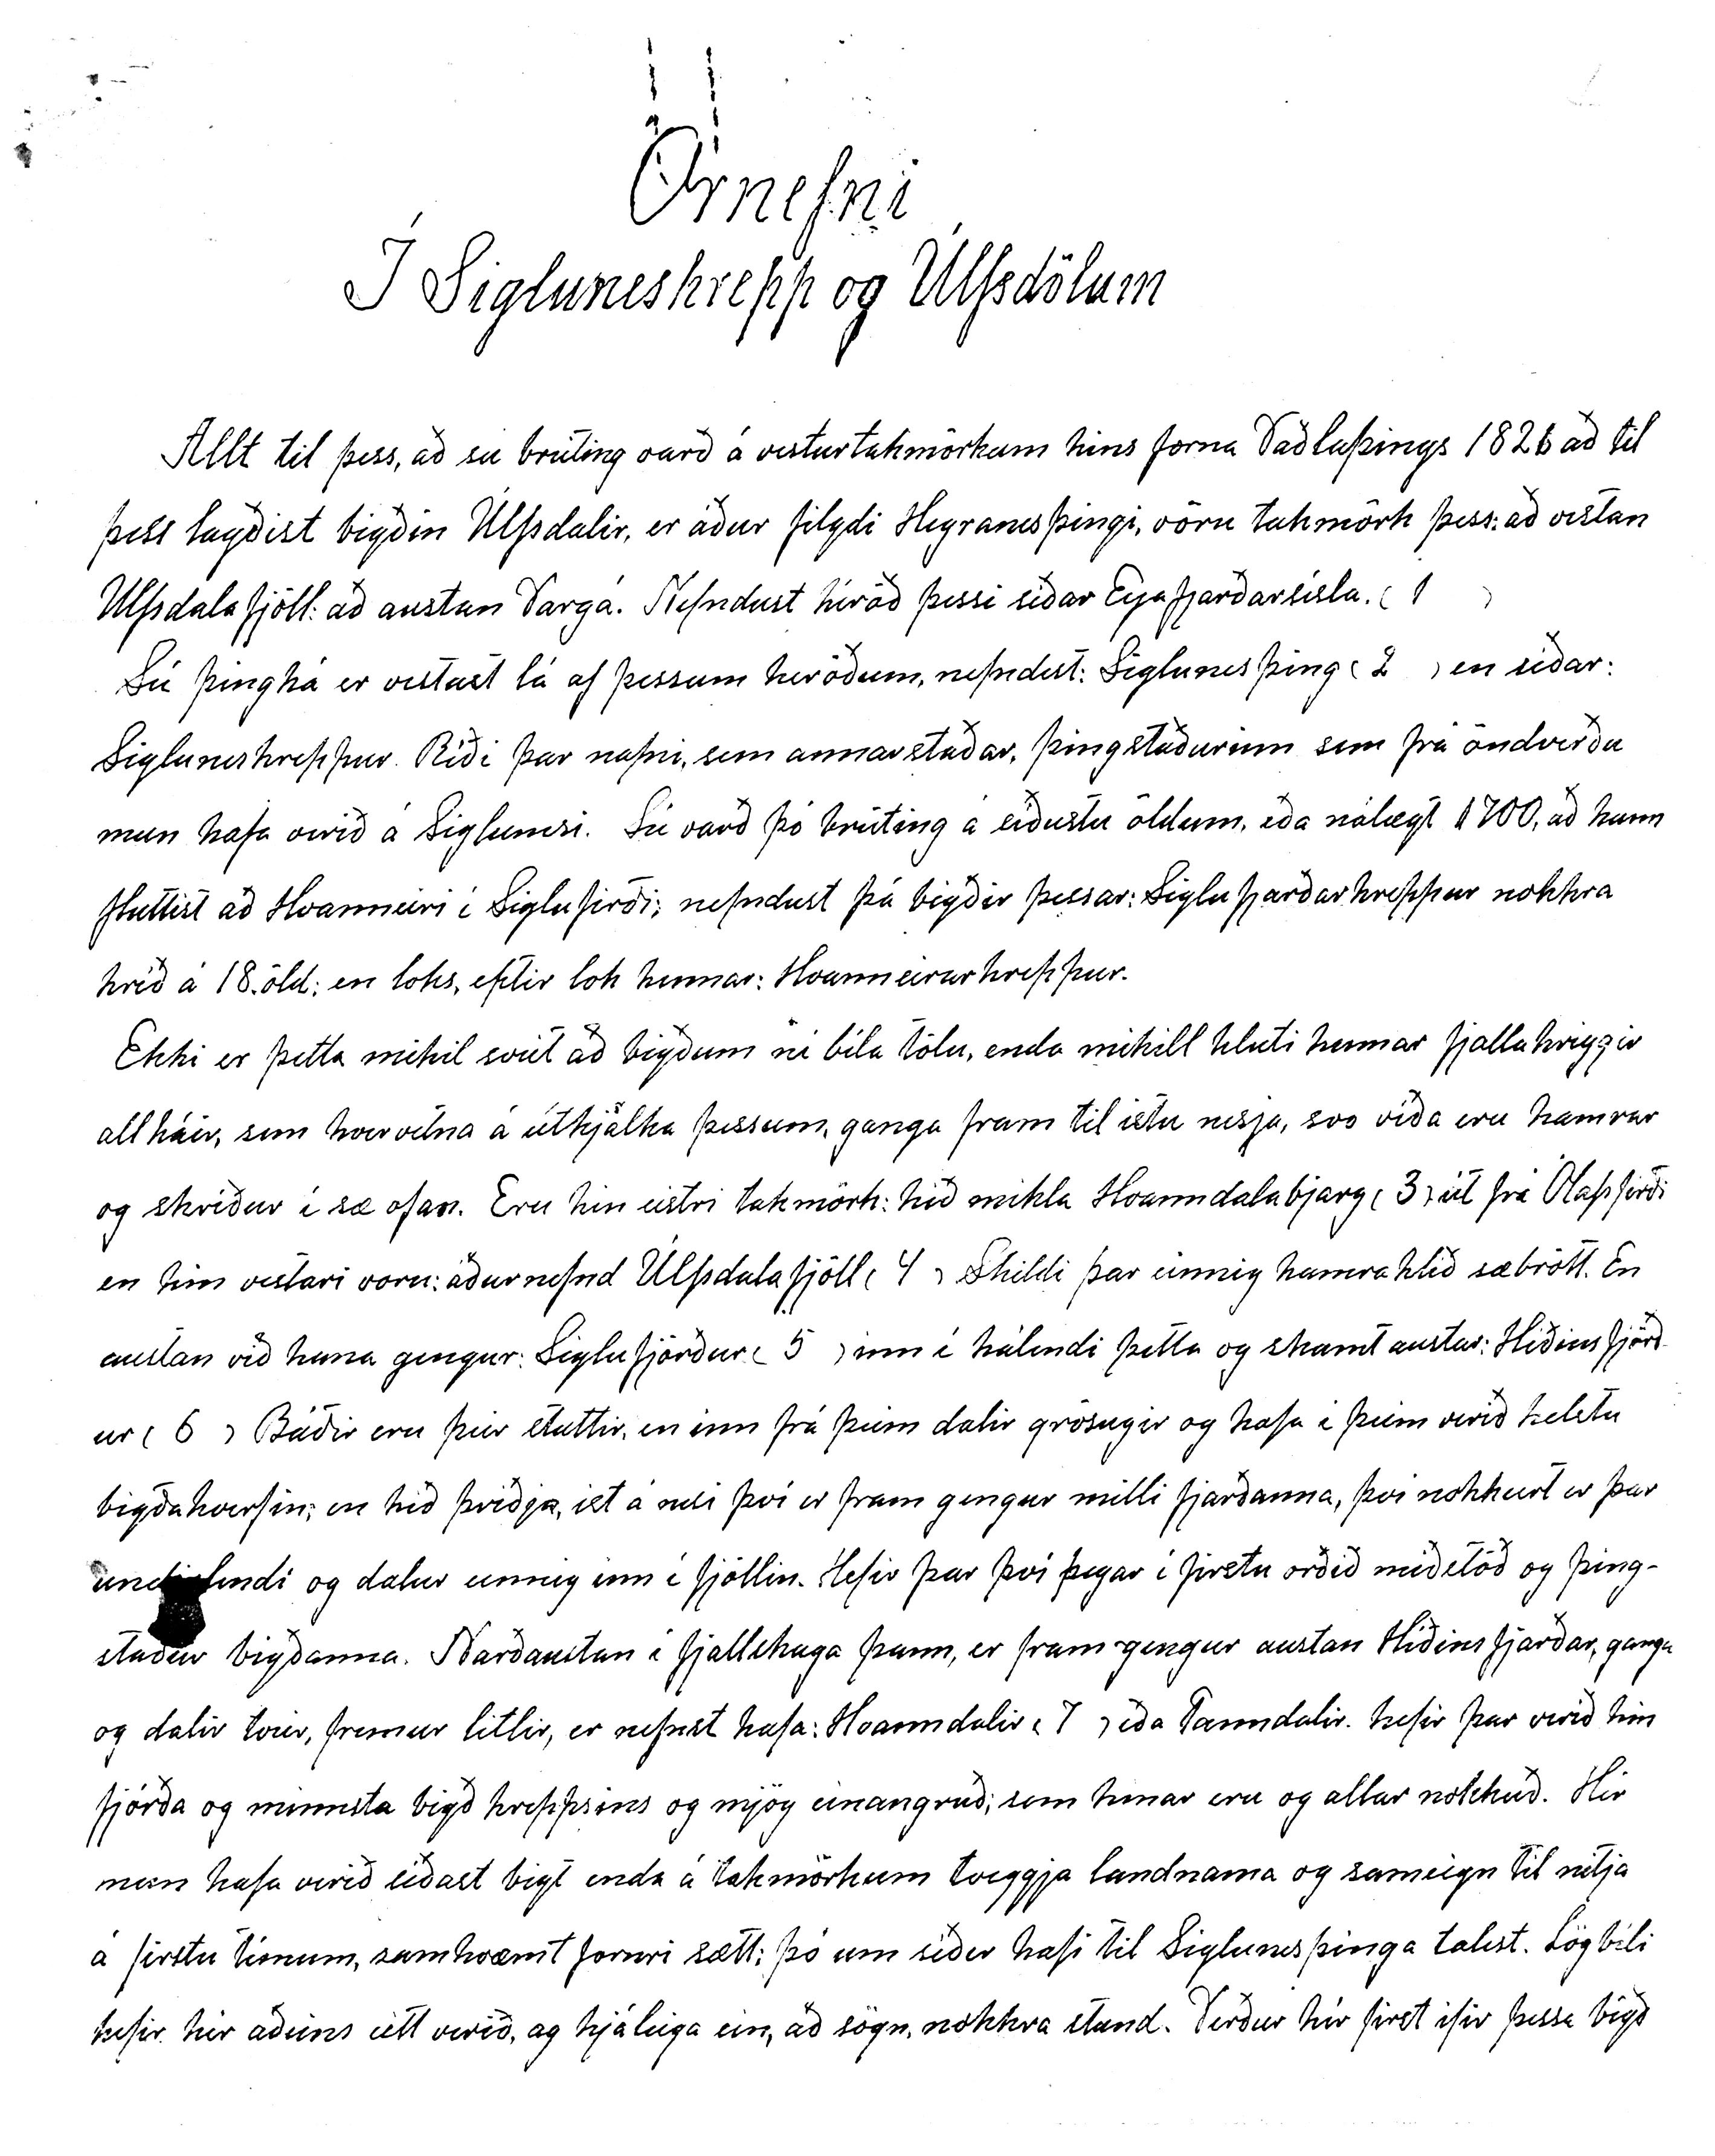 Örnefni
Í Sigluneshrepp og Úlfsdölum
Allt til þess, að su breiting varð á vesturtakmörkum hins forna Vaðlaþings 1826 að til
þess lagðist bigðin Úlfsdalir, er áður filgdi Hegranesþingi, vöru takmörk þess: að vestan
Ulfsdalafjöll: að austan Varga. Nefndust héröð þessi siðar Eyafjarðarsísla. ( 1 )
Sú þinghá er vestast lá af þessum heröðum, nefndist: Siglunesþing ( 2 ) en siðar:
Sigluneshreppur. Réði þar nafni, sem annarstaðar, þingstaðurinn sem frá öndverðu
mun hafa verið á Siglunesi. Sú varð þó breiting á siðustu öldum, eða nálægt 1700, að hann
fluttist að Hvanneiri í Siglufirði; nefndust þá bigðir þessar: Siglufjarðarhreppur nokkra
hríð á 18. öld: en loks, eftir lok hennar: Hvanneirarhreppur.
Ekki er þetta mikil sveit að bigðum né bíla tölu, enda mikill hluti hennar fjallahriggir
allháir, sem hvervetna á útkjálka þessum, ganga fram til istu nesja, svo víða eru hamrar
og skriður í sæ ofan. Eru hin eistri takmörk: hið mikla Hvanndalabjarg ( 3 ) út frá Ólafsfirði
en hin vestari voru: áðurnefnd Úlfsdalafjöll ( 4 ) Skildi þar einnig hamrahlið sæbrött. En
austan við hana gengur: Siglufjörður ( 5 ) inn í hálendi þetta og skamt austar: Héðinsfjörð-
ur ( 6 ) Báðir eru þeir stuttir, en inn frá þeim dalir grösugir og hafa í þeim verið helstu
bigðahverfin; en hið þriðja, ist á nesi því er fram gengur milli fjarðanna, því nokkurt er þar
undirlendi og dalur einnig inn í fjöllin. Hefir þar því þegar í firstu orðið miðstöð og þing-
staður bigðanna. Narðaustan í fjallshaga þann, er fram gengur austan Héðinsfjarðar, ganga
og dalir tveir, fremur litlir, er nefnst hafa: Hvanndalir ( 7 ) eða Vanndalir. hefir þar verið hin
fjórða og minnsta bigð hreppsins og mjög einangruð; sem hinar eru og allar nokkuð. Hér
mun hafa verið siðast bigt enda á takmörkum tveggja landnama og sameign til nitja
á firstu tímum, samkvæmt fornri sætt: þó um síðer hafi til Siglunesþinga talist. Lögbíli
hefir hér aðeins eitt verið, ag hjáleiga ein, að sögn, nokkra stund. Verður hér first ifir þessa bigð